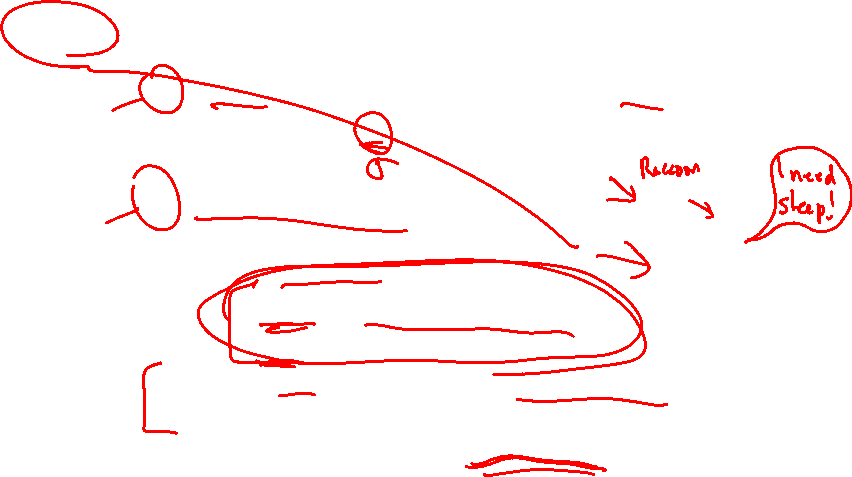 Raccoon
I need
sleep!